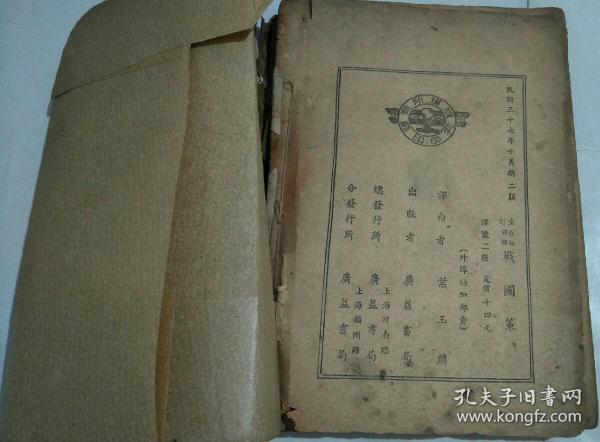 民國三十七年十月新二版
戰國策
洋裝二册 定價十四元
(外埠酌加郵費)
譯白者 葉玉麟
出版者 廣益書局
上海河南路
總發行所 廣益書局
上海福州路
分發行所 廣益書局
孔夫子旧书网
www.kongfz.com